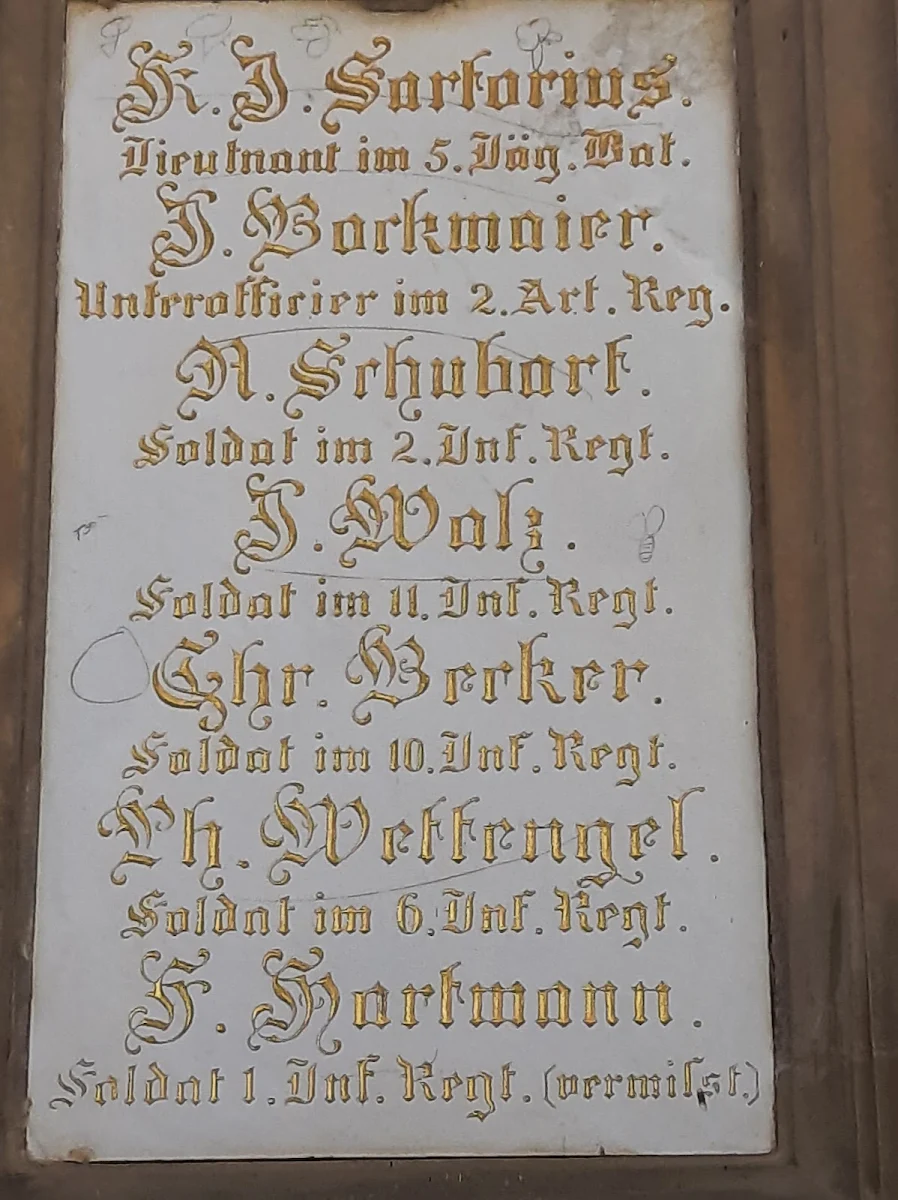 K. J. Sartorius.
Lieutnant im 5. Jäg. Bat.
J. Backmaier.
Unterofficier im 2. Art. Reg.
A. Schubart.
Soldat im 2. Inf. Regt.
J. Walz.
Soldat im 11. Inf. Regt.
Chr. Becker.
Soldat im 10. Inf. Regt.
Ph. Wettengel.
Soldat im 6. Inf. Regt.
H. Hartmann.
Soldat 1. Inf. Regt. (vermiſst.)